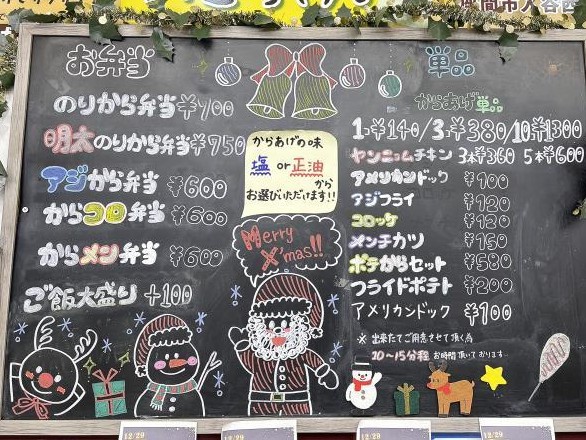 お弁当
のりから弁当 ¥700
明太のりから弁当 ¥750
アジから弁当 ¥600
からコロ弁当 ¥600
からメン弁当 ¥600
ご飯大盛り +100
からあげの味
塩 or 正油
から
お選びいただけます!!
Merry
X'mas!!
単品
からあげ単品
1コ¥140/3コ¥380/10コ¥1300
ヤンニョムチキン 3本¥360 5本¥600
アメリカンドック ¥100
アジフライ ¥120
コロッケ ¥130
メンチカツ ¥150
ポテからセット ¥580
フライドポテト ¥200
アメリカンドック ¥100
※ 出来たてご用意させて頂く為
10〜15分程お時間頂いております
12/29
12/29
12/29
12/29